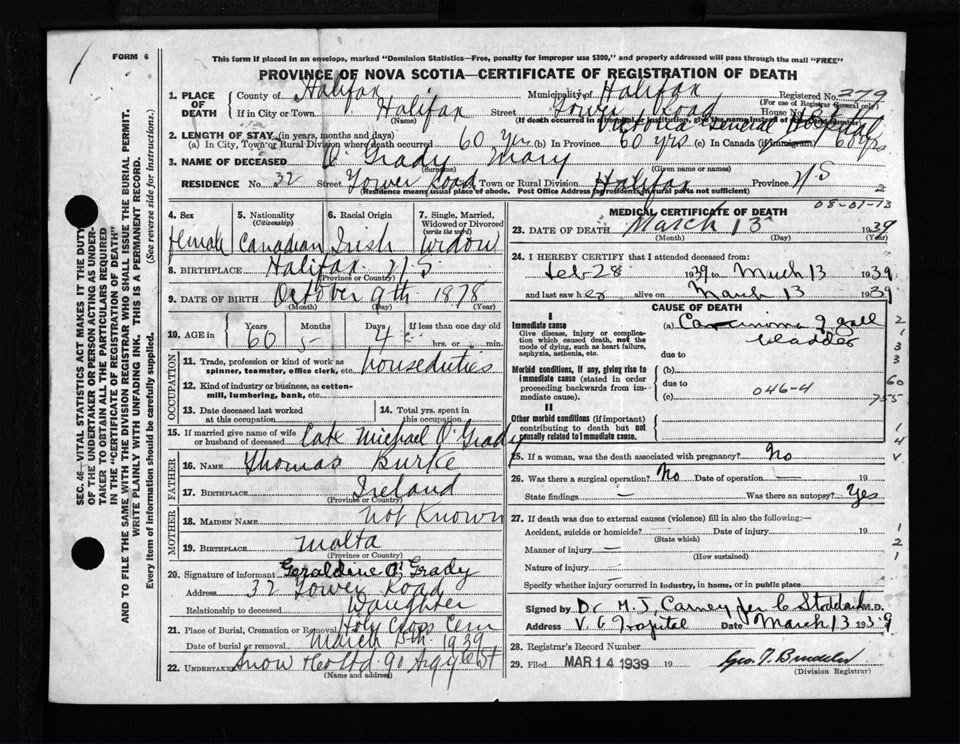 FORM 6
This form if placed in an envelope, marked "Dominion Statistics—Free, penalty for improper use $300," and properly addressed will pass through the mail "FREE"
PROVINCE OF NOVA SCOTIA—CERTIFICATE OF REGISTRATION OF DEATH
SEC. 46—VITAL STATISTICS ACT MAKES IT THE DUTY
OF THE UNDERTAKER OR PERSON ACTING AS UNDER-
TAKER TO OBTAIN ALL THE PARTICULARS REQUIRED
IN THE "CERTIFICATE OF REGISTRATION OF DEATH"
AND TO FILE THE SAME WITH THE DIVISION REGISTRAR WHO SHALL ISSUE THE BURIAL PERMIT.
WRITE PLAINLY WITH UNFADING INK. THIS IS A PERMANENT RECORD.
Every item of information should be carefully supplied. (See reverse side for instructions.)
1. PLACE OF DEATH
County of Halifax Municipality of Halifax Registered No. 379
(For use of Registrar General only)
If in City or Town Halifax Street Tower Road House No.
(Name) (If death occurred in a hospital or institution, give the name instead of street and number)
Victoria General Hospital
2. LENGTH OF STAY (in years, months and days)
(a) In City, Town or Rural Division where death occurred 60 yrs (b) In Province 60 yrs (c) In Canada (if immigrant) 60 yrs
3. NAME OF DECEASED O'Grady Mary
(Surname) (Given name or names)
RESIDENCE No. 32 Street Tower Road Town or Rural Division Halifax Province N.S
(Residence means usual place of abode. Post Office Address for rural parts not sufficient) 2
4. Sex 5. Nationality (Citizenship) 6. Racial Origin 7. Single, Married, Widowed or Divorced (write the word)
Female Canadian Irish Widow
8. BIRTHPLACE Halifax N.S
(Province or Country)
9. DATE OF BIRTH October 9th 1878
(Month) (Day) (Year)
10. AGE in Years Months Days If less than one day old
60 5 4 hrs. or min.
OCCUPATION
11. Trade, profession or kind of work as spinner, teamster, office clerk, etc. houseduties
12. Kind of industry or business, as cotton-mill, lumbering, bank, etc.
13. Date deceased last worked at this occupation 14. Total yrs. spent in this occupation
15. If married give name of wife or husband of deceased Late Michael O'Grady
FATHER
16. NAME Thomas Burke
17. BIRTHPLACE Ireland
(Province or Country)
MOTHER
18. MAIDEN NAME Not Known
19. BIRTHPLACE Malta
(Province or Country)
20. Signature of informant Geraldine O'Grady
Address 32 Tower Road
Relationship to deceased Daughter
21. Place of Burial, Cremation or Removal Holy Cross Cem
Date of burial or removal March 15th. 1939
22. UNDERTAKER Snow & Co Ltd 90 Argyle St
(Name and address)
MEDICAL CERTIFICATE OF DEATH 08-01-13
23. DATE OF DEATH March 13 1939
(Month) (Day) (Year)
24. I HEREBY CERTIFY that I attended deceased from:
Feb 28 1939 to March 13 1939
and last saw her alive on March 13 1939
CAUSE OF DEATH
I
Immediate cause
Give disease, injury or complication which caused death, not the mode of dying, such as heart failure, asphyxia, asthenia, etc.
(a) Carcinoma of gall bladder
due to
Morbid conditions, if any, giving rise to immediate cause (stated in order proceeding backwards from immediate cause).
(b)
due to 046-4
(c)
II
Other morbid conditions (if important) contributing to death but not causally related to immediate cause.
2
1
3
3
60
755
1
4
25. If a woman, was the death associated with pregnancy? No
26. Was there a surgical operation? No Date of operation — 19
State findings — Was there an autopsy? Yes
27. If death was due to external causes (violence) fill in also the following:—
Accident, suicide or homicide? Date of injury 19
(State which)
Manner of injury —
(How sustained)
Nature of injury —
Specify whether injury occurred in industry, in home, or in public place
1
2
1
Signed by Dr M. J. Carney per C Stoddard M.D.
Address V. G Hospital Date March 13 1939
28. Registrar's Record Number
29. Filed MAR 14 1939 19
(Division Registrar)